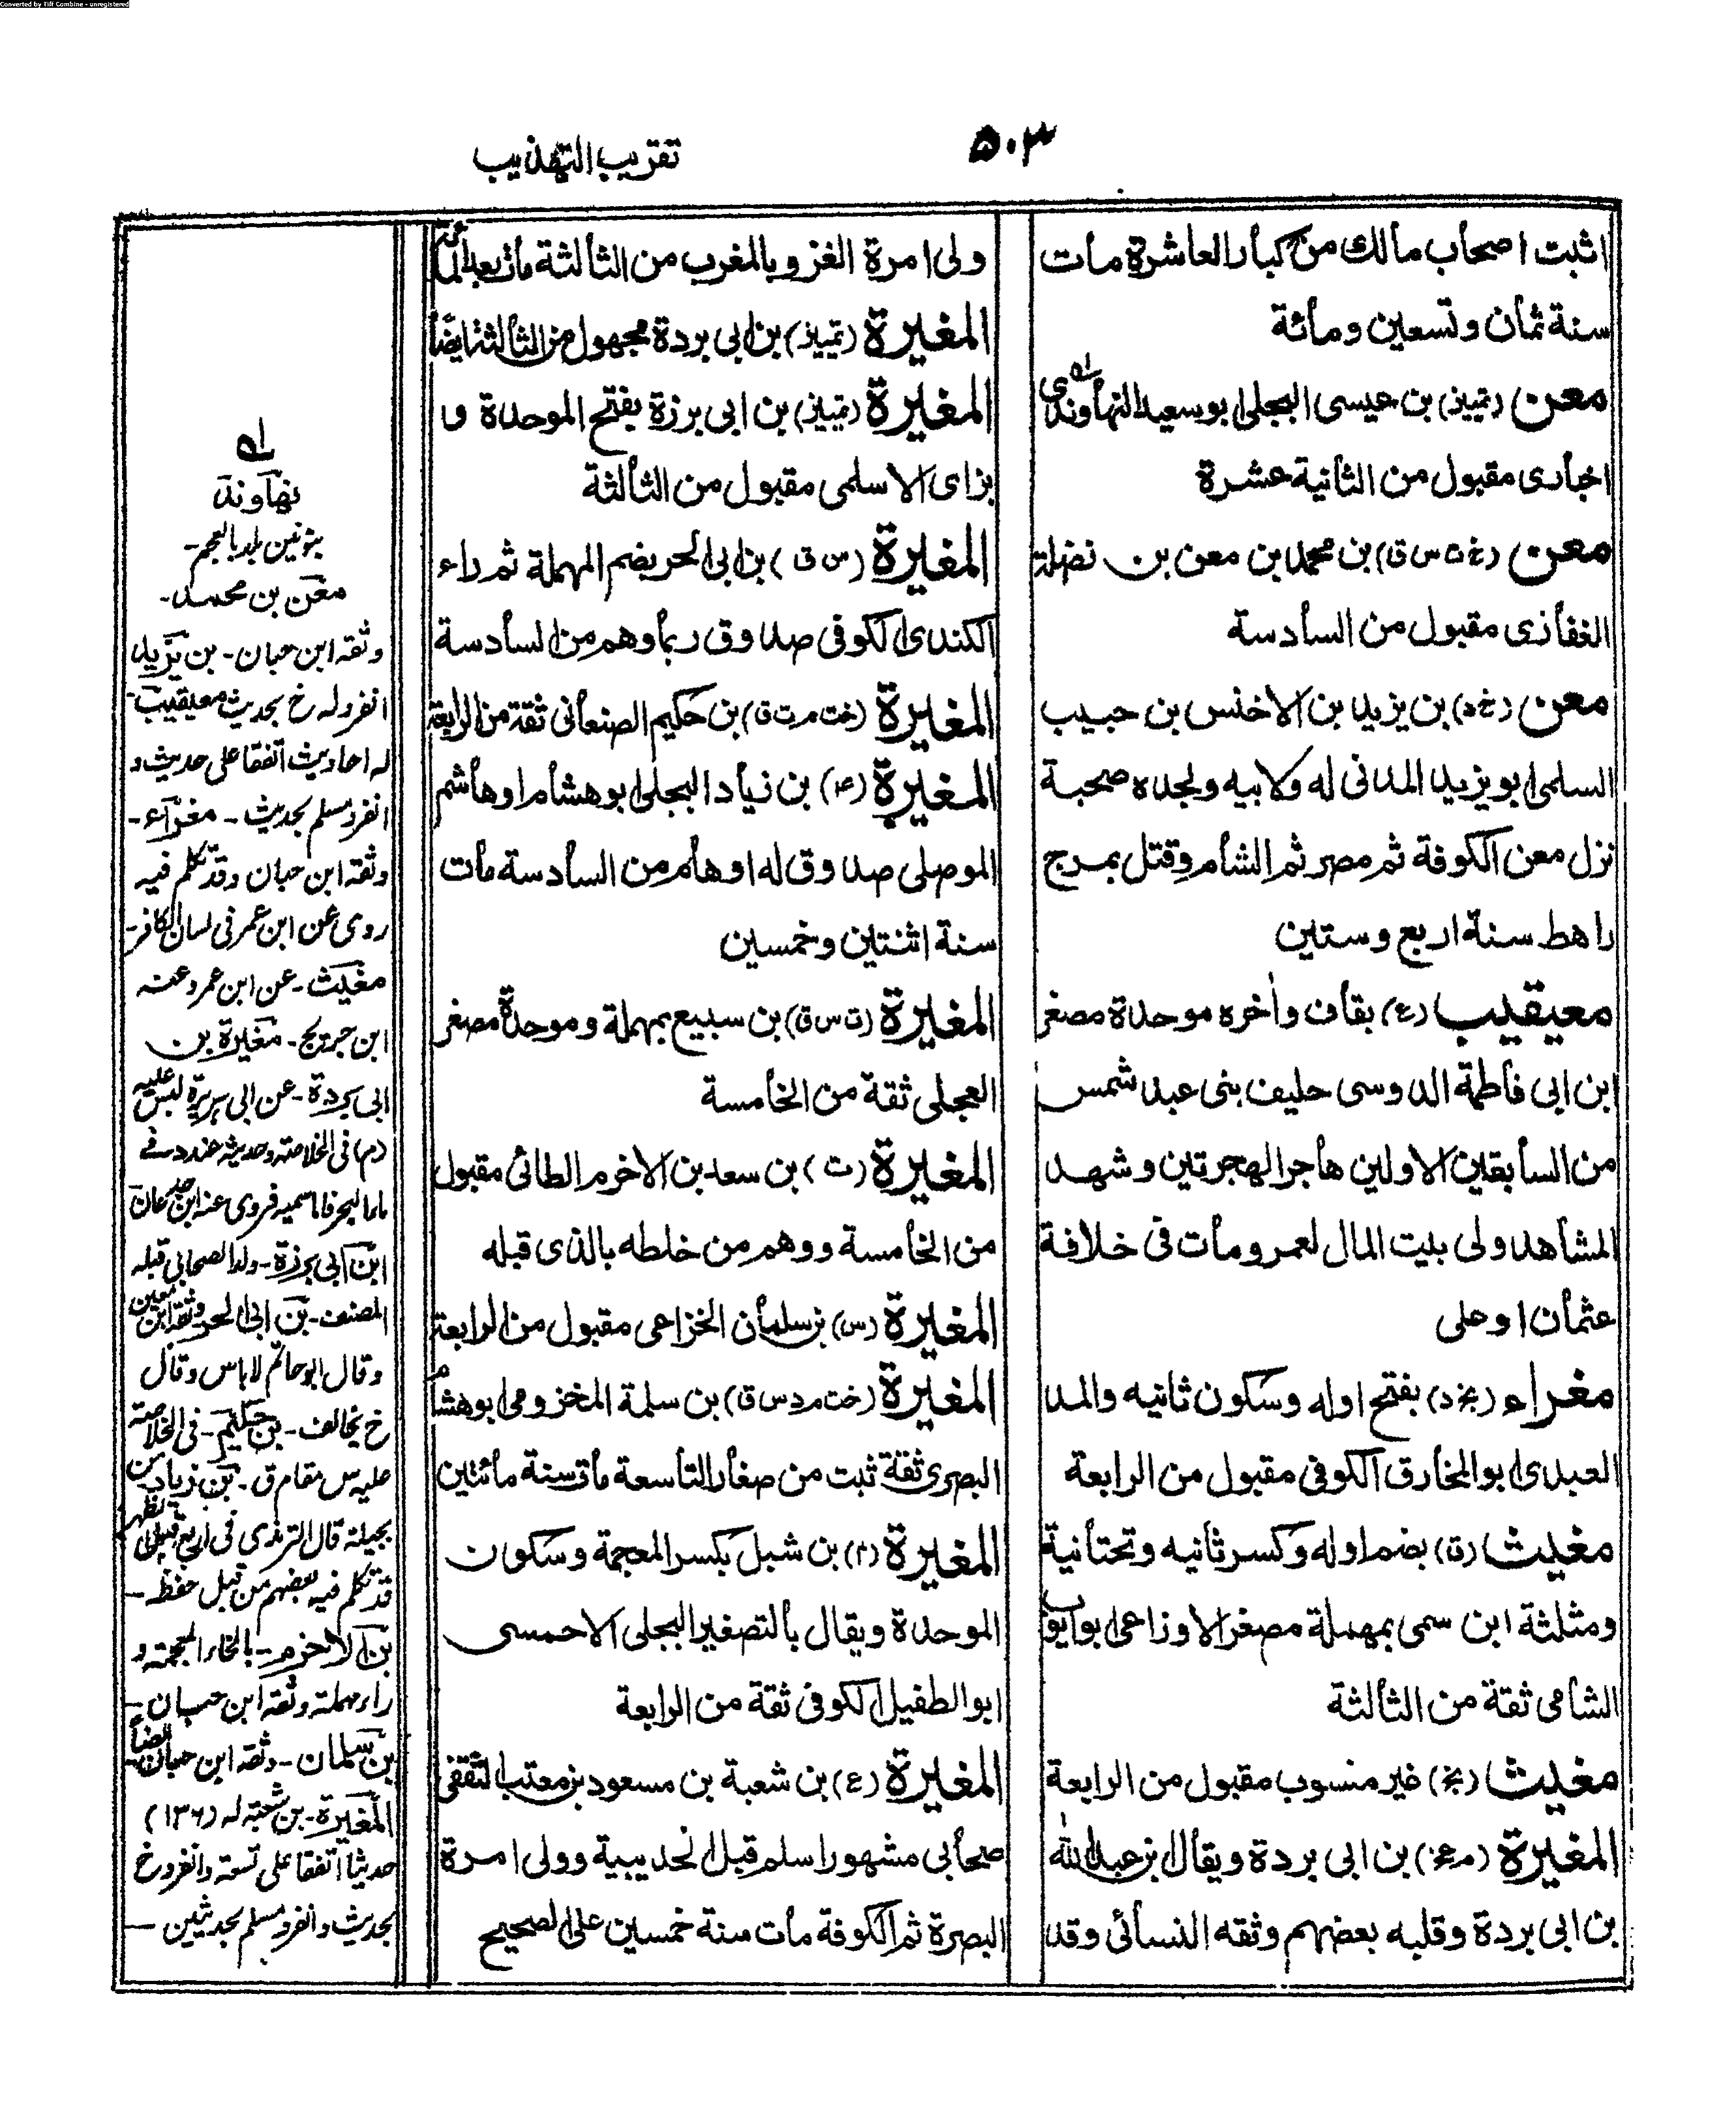 Converted by Tiff Combine - unregistered
۵۰۳
تقريب التهذيب
اثبت اصحاب مالك من كبار العاشرة مات
سنة ثمان وتسعين ومائة
معن (تمييز) بن عيسى البجلى ابو سعيد النهاوندى
اخبارى مقبول من الثانية عشرة
معن (خ ت س ق) بن محمد بن معن بن نضلة
الغفارى مقبول من السادسة
معن (خ د) بن يزيد بن الاخنس بن حبيب
السلمى ابو يزيد المدنى له ولابيه ولجده صحبة
نزل معن الكوفة ثم مصر ثم الشام وقتل بمرج
راهط سنة اربع وستين
معيقيب (ع) بقاف واخره موحدة مصغر
ابن ابى فاطمة الدوسى حليف بنى عبد شمس
من السابقين الاولين هاجر الهجرتين وشهد
المشاهد ولى بيت المال لعمر ومات فى خلافة
عثمان او على
مغراء (بخ د) بفتح اوله وسكون ثانيه والمد
العبدى ابو المخارق الكوفى مقبول من الرابعة
مغيث (ق) بضم اوله وكسر ثانيه وتحتانية
ومثلثة ابن سمى بمهملة مصغر الاوزاعى ابو ايوب
الشامى ثقة من الثالثة
مغيث (بخ) غير منسوب مقبول من الرابعة
المغيرة بن ابى بردة ويقال بن عبد الله
بن ابى بردة وقلبه بعضهم وثقه النسائى وقد
ولى امرة الغزو بالمغرب من الثالثة مات بعد المائة
المغيرة (تمييز) بن ابى بردة مجهول من الثالثة ايضا
المغيرة (تمييز) بن ابى برزة بفتح الموحدة و
بزاى الاسلمى مقبول من الثالثة
المغيرة (س ق) بن ابى الحر بضم المهملة ثم راء
الكندى الكوفى صدوق ربما وهم من السادسة
المغيرة (خت م ت ق) بن حكيم الصنعانى ثقة من الرابعة
المغيرة (۴) بن زياد البجلى ابو هشام او هاشم
الموصلى صدوق له اوهام من السادسة مات
سنة اثنتين وخمسين
المغيرة (ت س ق) بن سبيع بمهملة وموحدة مصغر
العجلى ثقة من الخامسة
المغيرة (ت) بن سعد بن الاخرم الطائى مقبول
من الخامسة ووهم من خلطه بالذى قبله
المغيرة (س) بن سلمان الخزاعى مقبول من الرابعة
المغيرة (خت م د س ق) بن سلمة المخزومى ابو هشام
البصرى ثقة ثبت من صغار التاسعة مات سنة مائتين
المغيرة (۴) بن شبل بكسر المعجمة وسكون
الموحدة ويقال بالتصغير البجلى الاحمسى
ابو الطفيل الكوفى ثقة من الرابعة
المغيرة (ع) بن شعبة بن مسعود بن معتب الثقفى
صحابى مشهور اسلم قبل الحديبية وولى امرة
البصرة ثم الكوفة مات سنة خمسين على الصحيح
له
نهاوند
بنونين بلد بالعجم -
معن بن محمد -
وثقه ابن حبان - بن يزيد
انفرد له خ بحديث معيقيب -
له احاديث اتفقا على حديث و
انفرد مسلم بحديث - مغراء -
وثقه ابن حبان وقد تكلم فيه
روى عن ابن عمر فى لسان الكافر -
مغيث - عن ابن عمر وعنه
ابن جريج - مغيرة بن
ابى بردة - عن ابى هريرة ليس عليه
(م) فى الخلاصة وحديثه عند د فى
ماء البحر فاما سميه فروى عنه
ابن ابى برزة - ولد الصحابى قبله
المصنف - بن ابى الحر وثقه ابن معين
وقال ابو حاتم لا باس وقال
خ يخالف - بن حكيم - فى الخلاصة
عليه س مقام ق - بن زياد من
بجيلة قال الترمذى فى
قد تكلم فيه بعضهم من قبل حفظه -
بن الاخرم - بالخاء المعجمة و
راء مهملة وثقه ابن حبان -
بن سلمان - وثقه ابن حبان ايضا
المغيرة - بن شعبة له (۱۳۶)
حديثا اتفقا على تسعة وانفرد خ
بحديث وانفرد مسلم بحديثين -